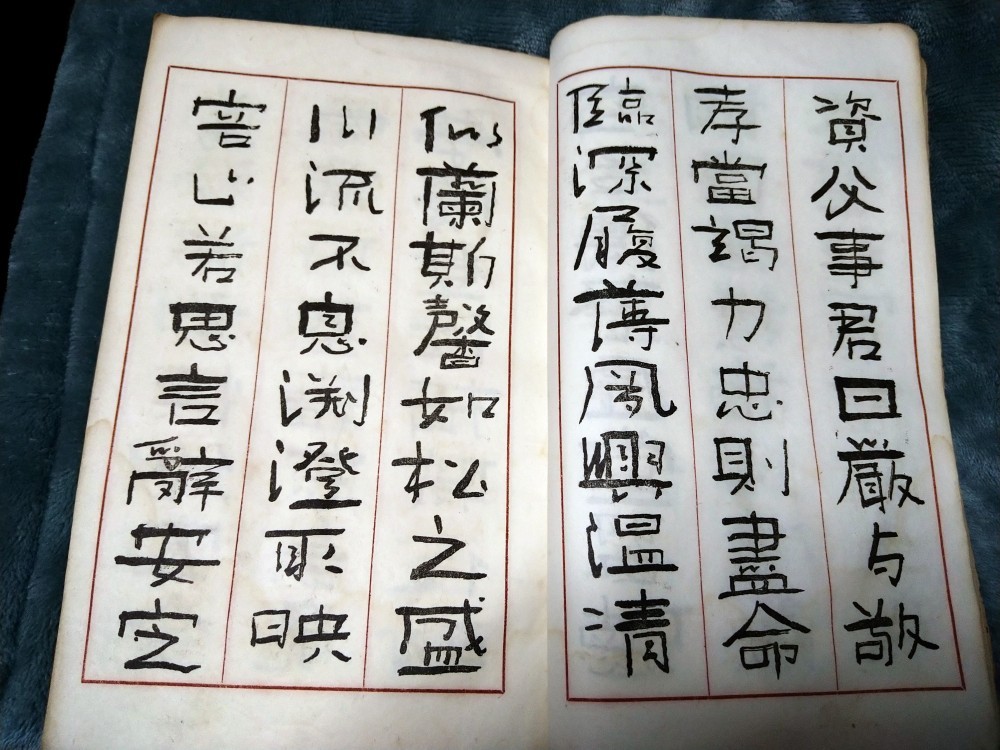 資父事君曰嚴与敬
孝當竭力忠則盡命
臨深履薄夙興温凊
似蘭斯馨如松之盛
川流不息渊澄取映
容止若思言辭安定